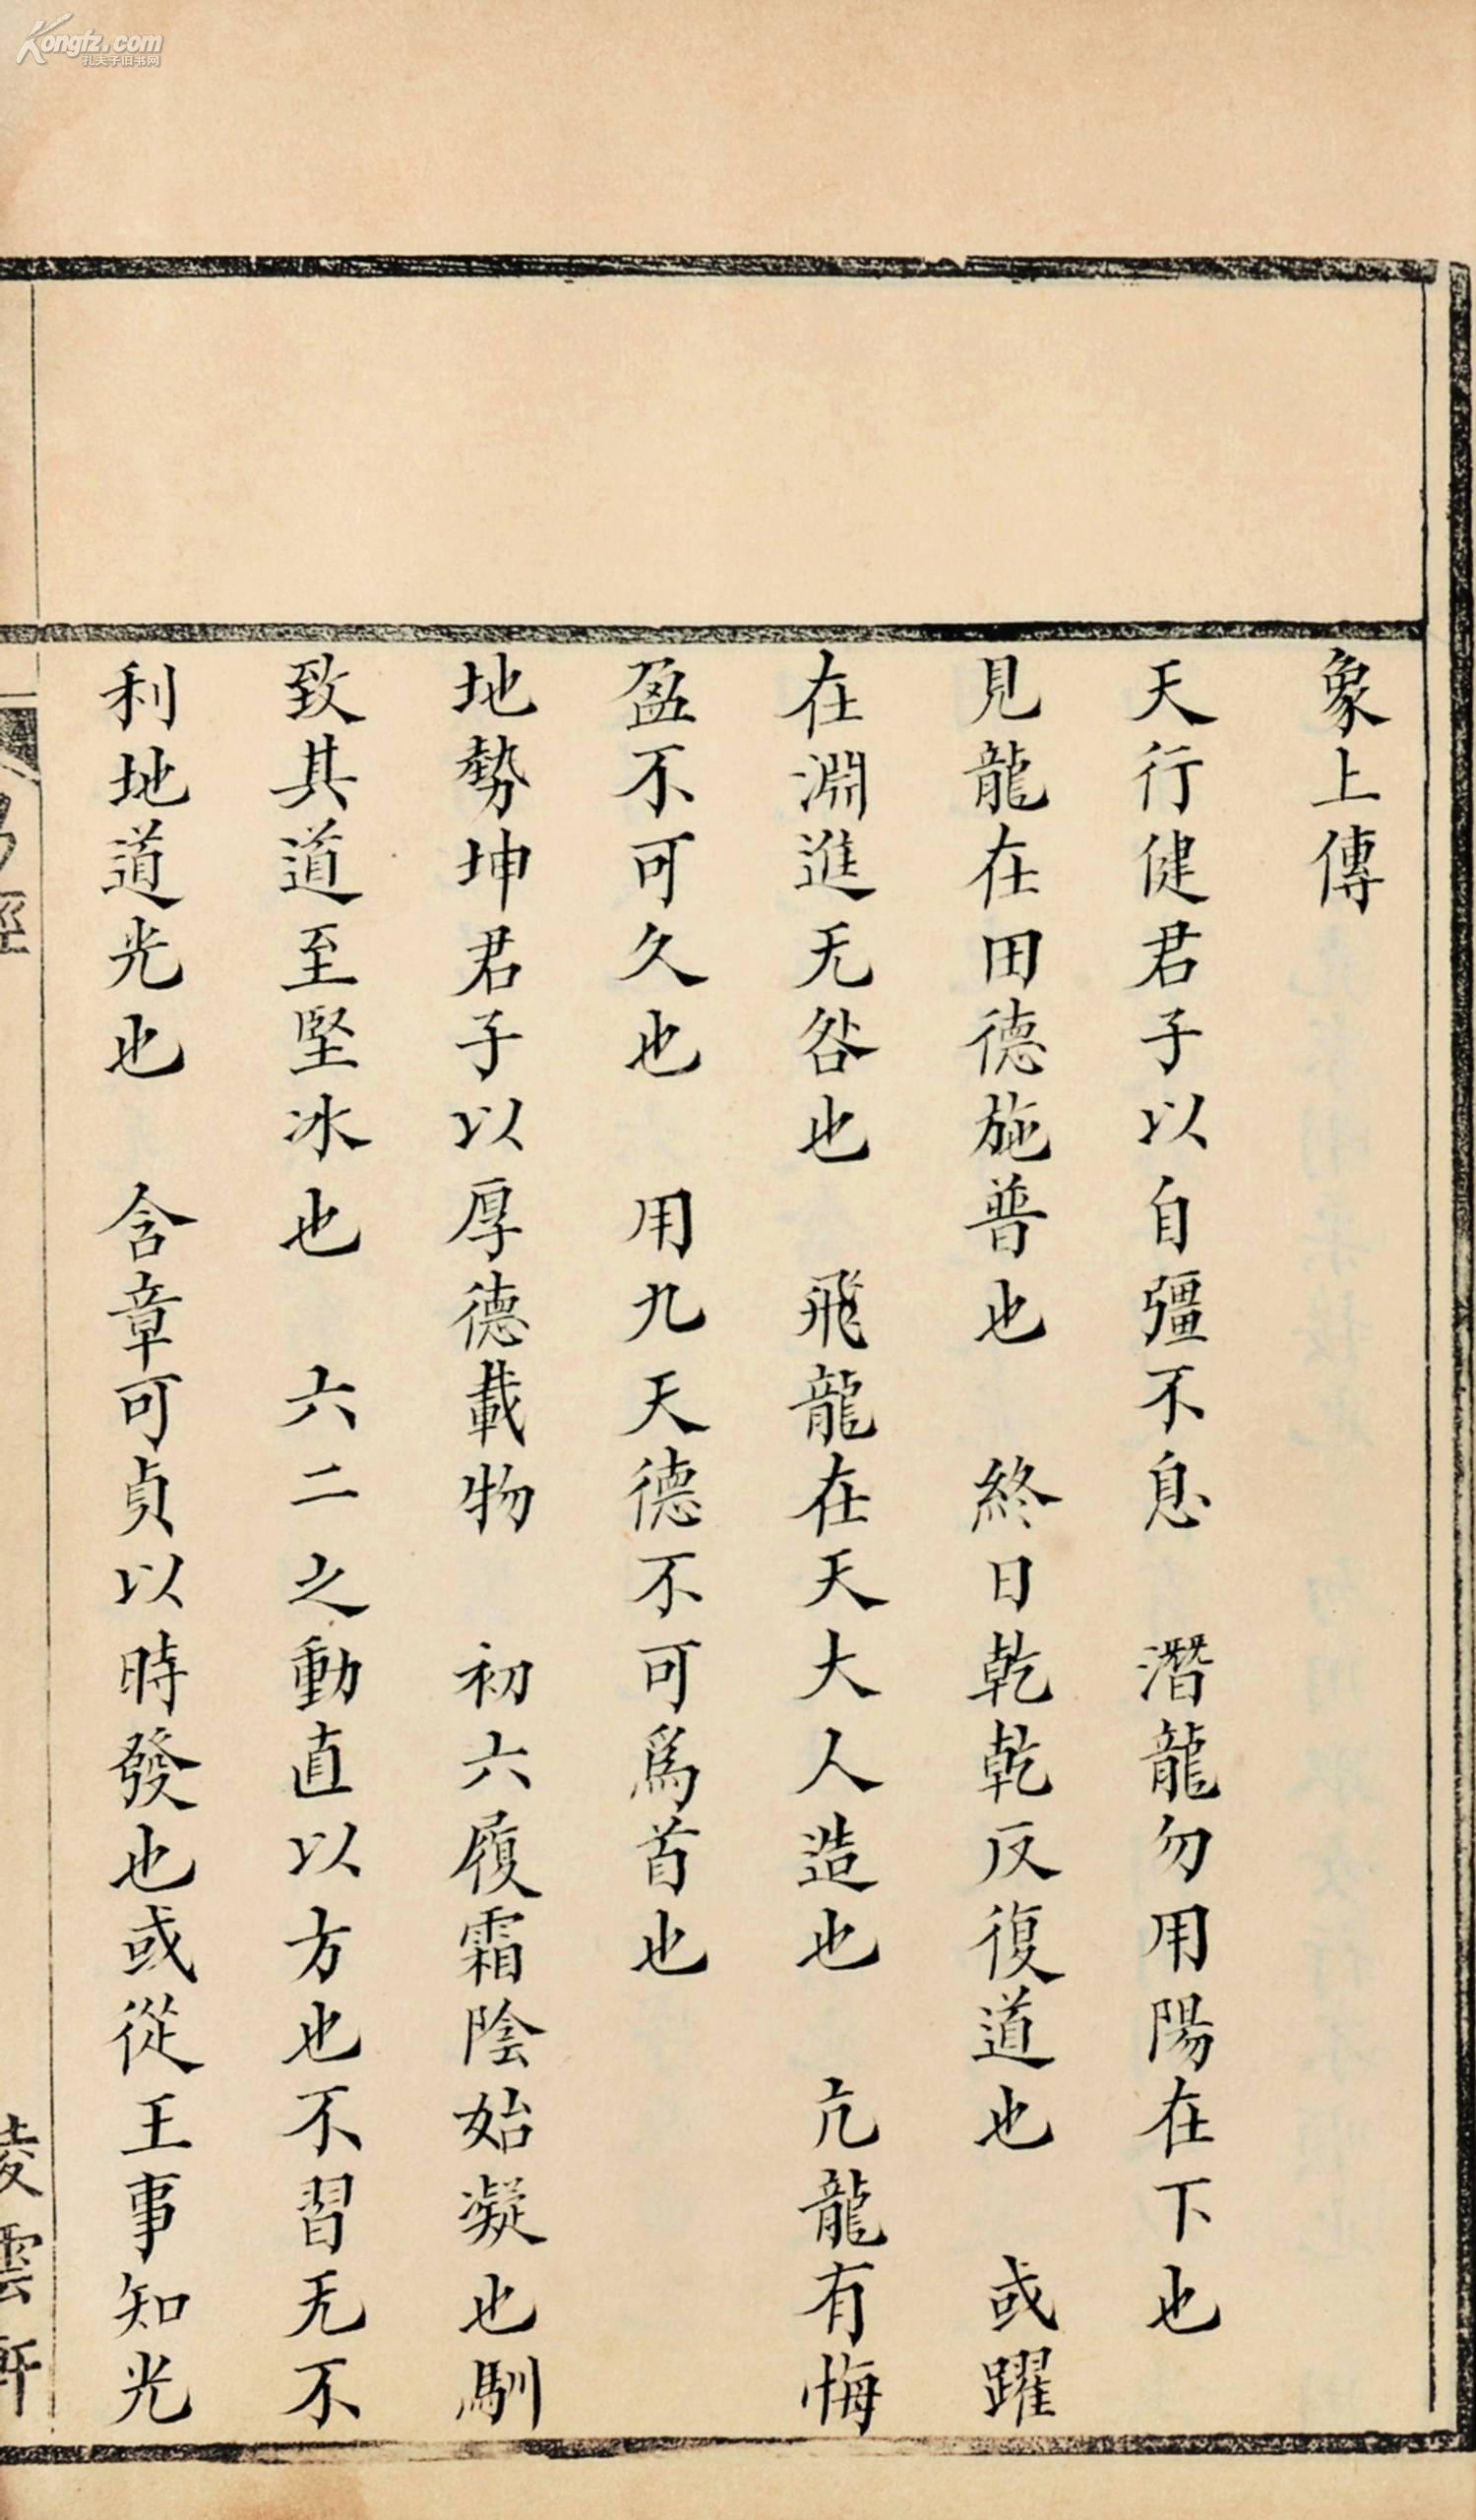 象上傳
天行健君子以自彊不息　潛龍勿用陽在下也
見龍在田德施普也　終日乾乾反復道也　或躍
在淵進无咎也　飛龍在天大人造也　亢龍有悔
盈不可久也　用九天德不可爲首也
地勢坤君子以厚德載物　初六履霜陰始凝也馴
致其道至堅冰也　六二之動直以方也不習无不
利地道光也　含章可貞以時發也或從王事知光
易經
凌雲軒
Kongfz.com
孔夫子旧书网